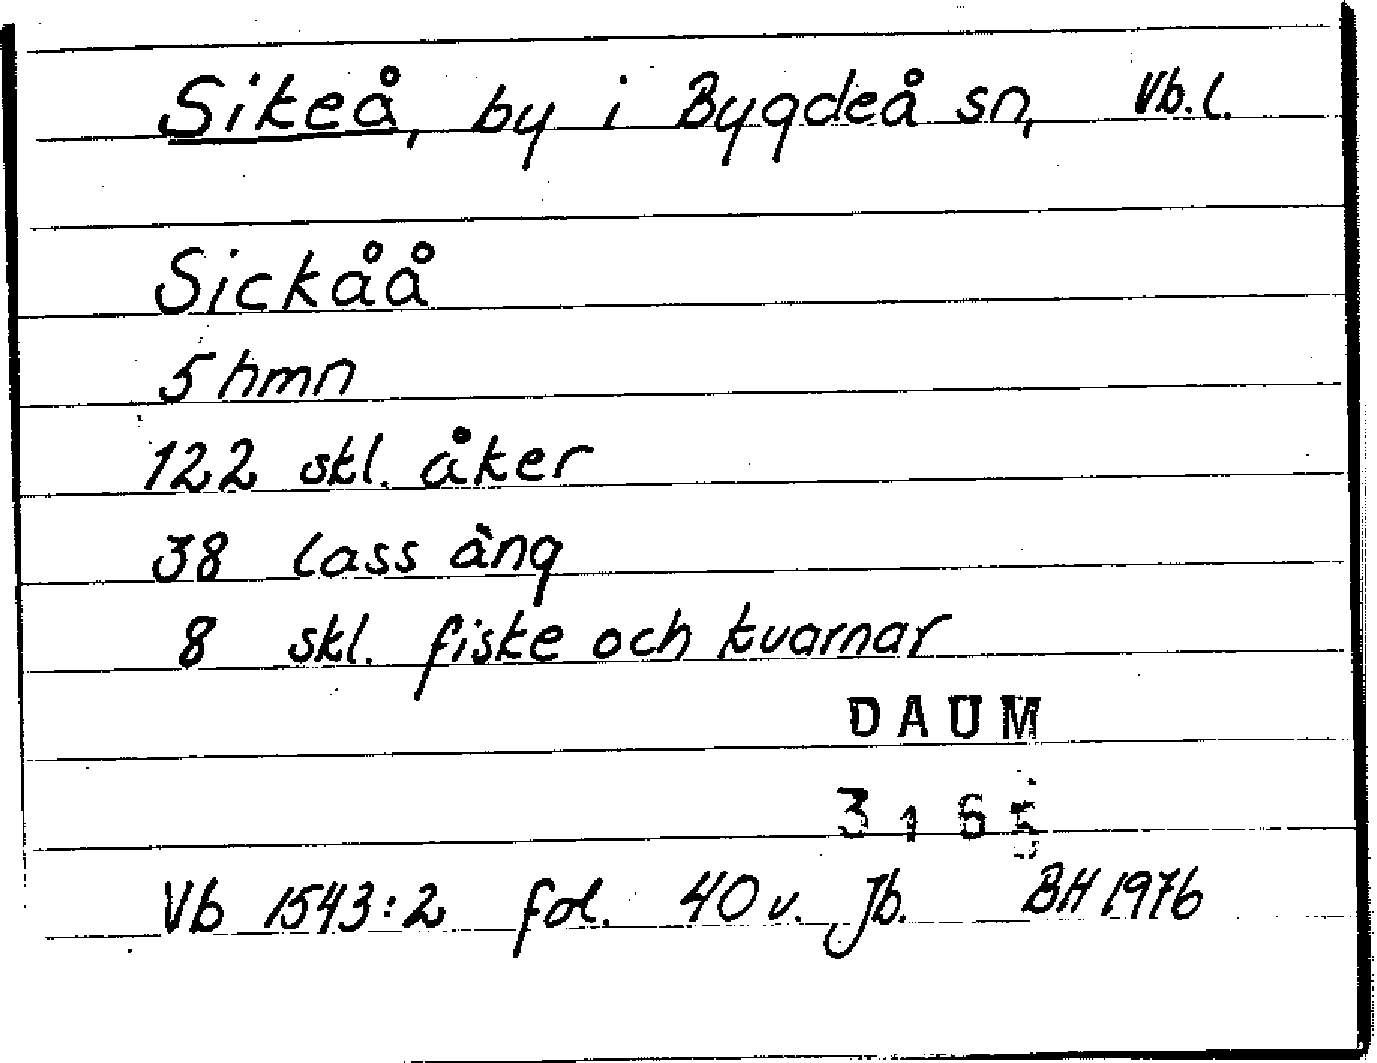 Sikeå, by i Bygdeå sn, Vb.l.
Sickåå
5 hmn
122 skl. åker
38 lass äng
8 skl. fiske och kvarnar
DAUM
3165
Vb 1543:2 fol. 40 v. Jb. BH 1976